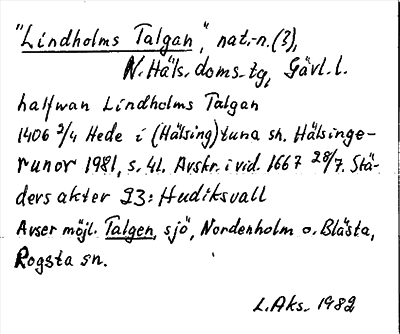 "Lindholms Talgan", nat.-n.(?),
N.Häls. doms.-tg, Gävl. l.
halfwan Lindholms Talgan
1406 2/4 Hede i (Hälsing)tuna sn. Hälsinge-
runor 1981, s. 41. Avskr. i vid. 1667 28/7. Stä-
ders akter 93: Hudiksvall
Avser möjl. Talgen, sjö, Nordenholm o. Blästa,
Rogsta sn.
L. Aks. 1982